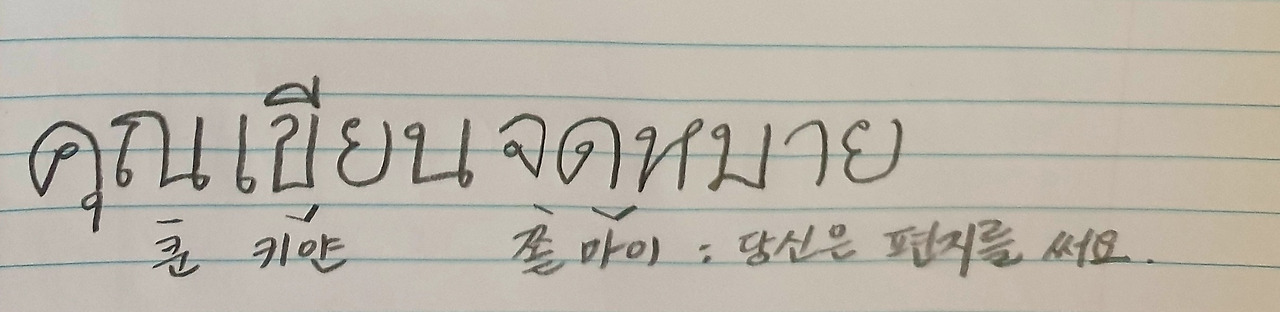 คุณเขียนจดหมาย
쿤 키얀 쫃 마이 : 당신은 편지를 써요.